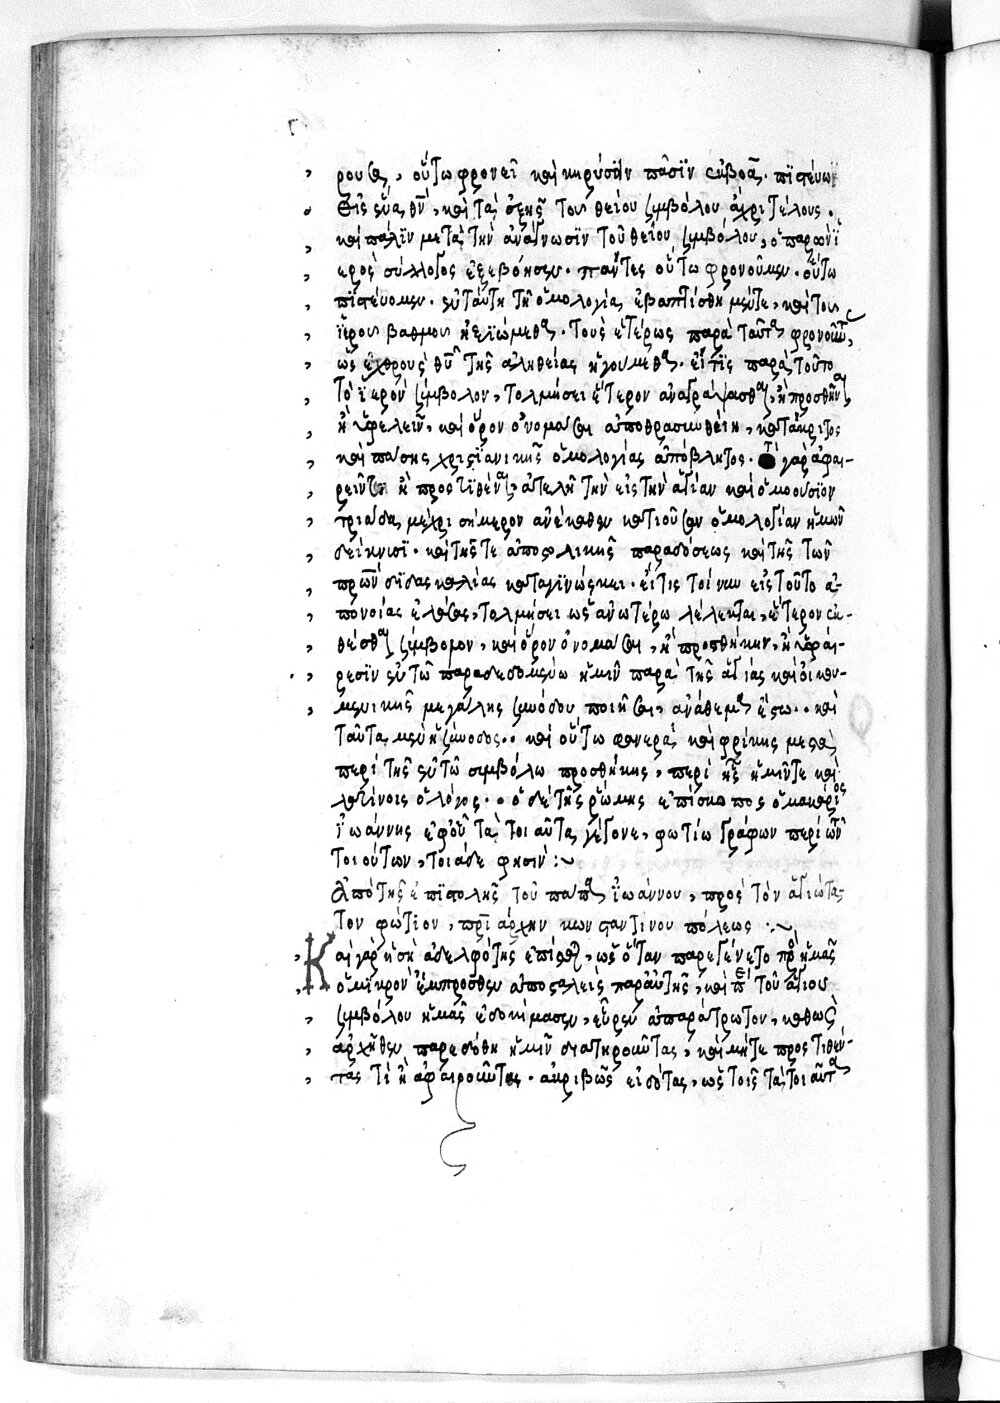 ρουσα, οὕτω φρονεῖ καὶ κηρύσσιν πᾶσϊν ἐκβοᾶ. πϊστεύω
εἰς ἕνα θν̄, καὶ τὰ ἑξῆς τοῦ θείου συμβόλου ἄχρι τέλους.
καὶ πάλϊν μετὰ τὴν ἀνάγνωσϊν τοῦ θείου συμβόλου, ὁ παρὼν ϊ
ερὸς σύλλογος ἐξεβόησεν. πάντες οὕτω φρονοῦμεν. οὕτω
πϊστεύομεν. ἐν ταύτη τῆ ὁμολογία ἐβαπτίσθημέν τε, καὶ τοῦ
ϊεροῦ βαθμοῦ ἠξϊώμεθα. τοὺς ἑτέρως παρὰ ταῦτα φρονοῦντας,
ὡς ἐχθροὺς θῡ τῆς ἀληθείας ἡγούμεθα. εἴ τϊς παρὰ τοῦτο
τὸ ϊερὸν σύμβολον, τολμήσει ἕτερον ἀναγράψασθαι, ἢ προσθεῖναι
ἢ ἀφελεῖν, καὶ ὅρον ὀνομάσαι ἀποθρασυνθείη, κατάκριτος
καὶ πάσης χριστϊανικῆς ὁμολογίας ἀπόβλητος. τὸ γὰρ ἀφαι-
ρεῖν ἢ προστϊθέναι, ἀτελῆ τὴν εἰς τὴν ἁγίαν καὶ ὁμοούσϊον
τριάδα μέχρι σήμερον ἀνέκαθεν κατιοῦσαν ὁμολογίαν ἡμῶν
δείκνυσϊ. καὶ τῆς τε ἀποστολικῆς παραδόσεως καὶ τῆς τῶν
πρ̄ων̄ διδασκαλίας καταγϊνώσκει. εἴ τις τοίνυν εἰς τοῦτο ἀ-
πονοίας ἐλάσας, τολμήσει ὡς ἀνωτέρω λέλεκται, ἕτερον ἐκ-
θέσθαι σύμβομον, καὶ ὅρον ὀνομάσαι, ἢ προσθήκην, ἢ ἀφαί-
ρεσϊν ἐν τῶ παραδεδομένω ἡμῖν παρὰ τῆς ἁγίας καὶ οἰκου-
μενικῆς μεγάλης συνόδου ποιῆσαι, ἀνάθεμα ἔστω.. καὶ
ταῦτα μὲν ἡ σύνοδος.. καὶ οὕτω φανερὰ καὶ φρίκης μεστὰ
περὶ τῆς ἐν τῶ συμβόλω προσθήκης, περὶ ἧς ἡμῖν τε καὶ
λατίνοις ὁ λόγος.. ὁ δὲ τῆς ρώμης ἐπίσκοπος ὁ μακάριος
ϊωάννης ἐφ' οὗ τὰ τοιαῦτα γέγονε, φωτίω γράφων περὶ τῶν
τοιούτων, τοιάδε φησὶν :~
ἀπὸ τῆς ἐπϊστολῆς τοῦ πάπα ϊωάννου, πρὸς τὸν ἁγιώτα-
τον φώτϊον, πρϊάρχην κωνσταντίνου πόλεως .~
Καὶ γὰρ ἡ σὴ ἀδελφότης ἐπίσταται, ὡς ὅταν παρεγένετο πρὸς ἡμᾶς
ὁ μϊκρὸν ἔμπροσθεν ἀποσταλεὶς παρ' αὐτῆς, καὶ περὶ τοῦ ἁγίου
συμβόλου ἡμᾶς ἐδοκίμασεν, εὗρεν ἀπαράτρωτον, καθὼς
ἀρχῆθεν παρεδόθη ἡμῖν διατηροῦντας, καὶ μήτε προστιθέν-
τας τὶ ἢ ἀφαιροῦντας. ἀκριβῶς εἰδότας, ὡς τοῖς τὰ τοιαῦτα